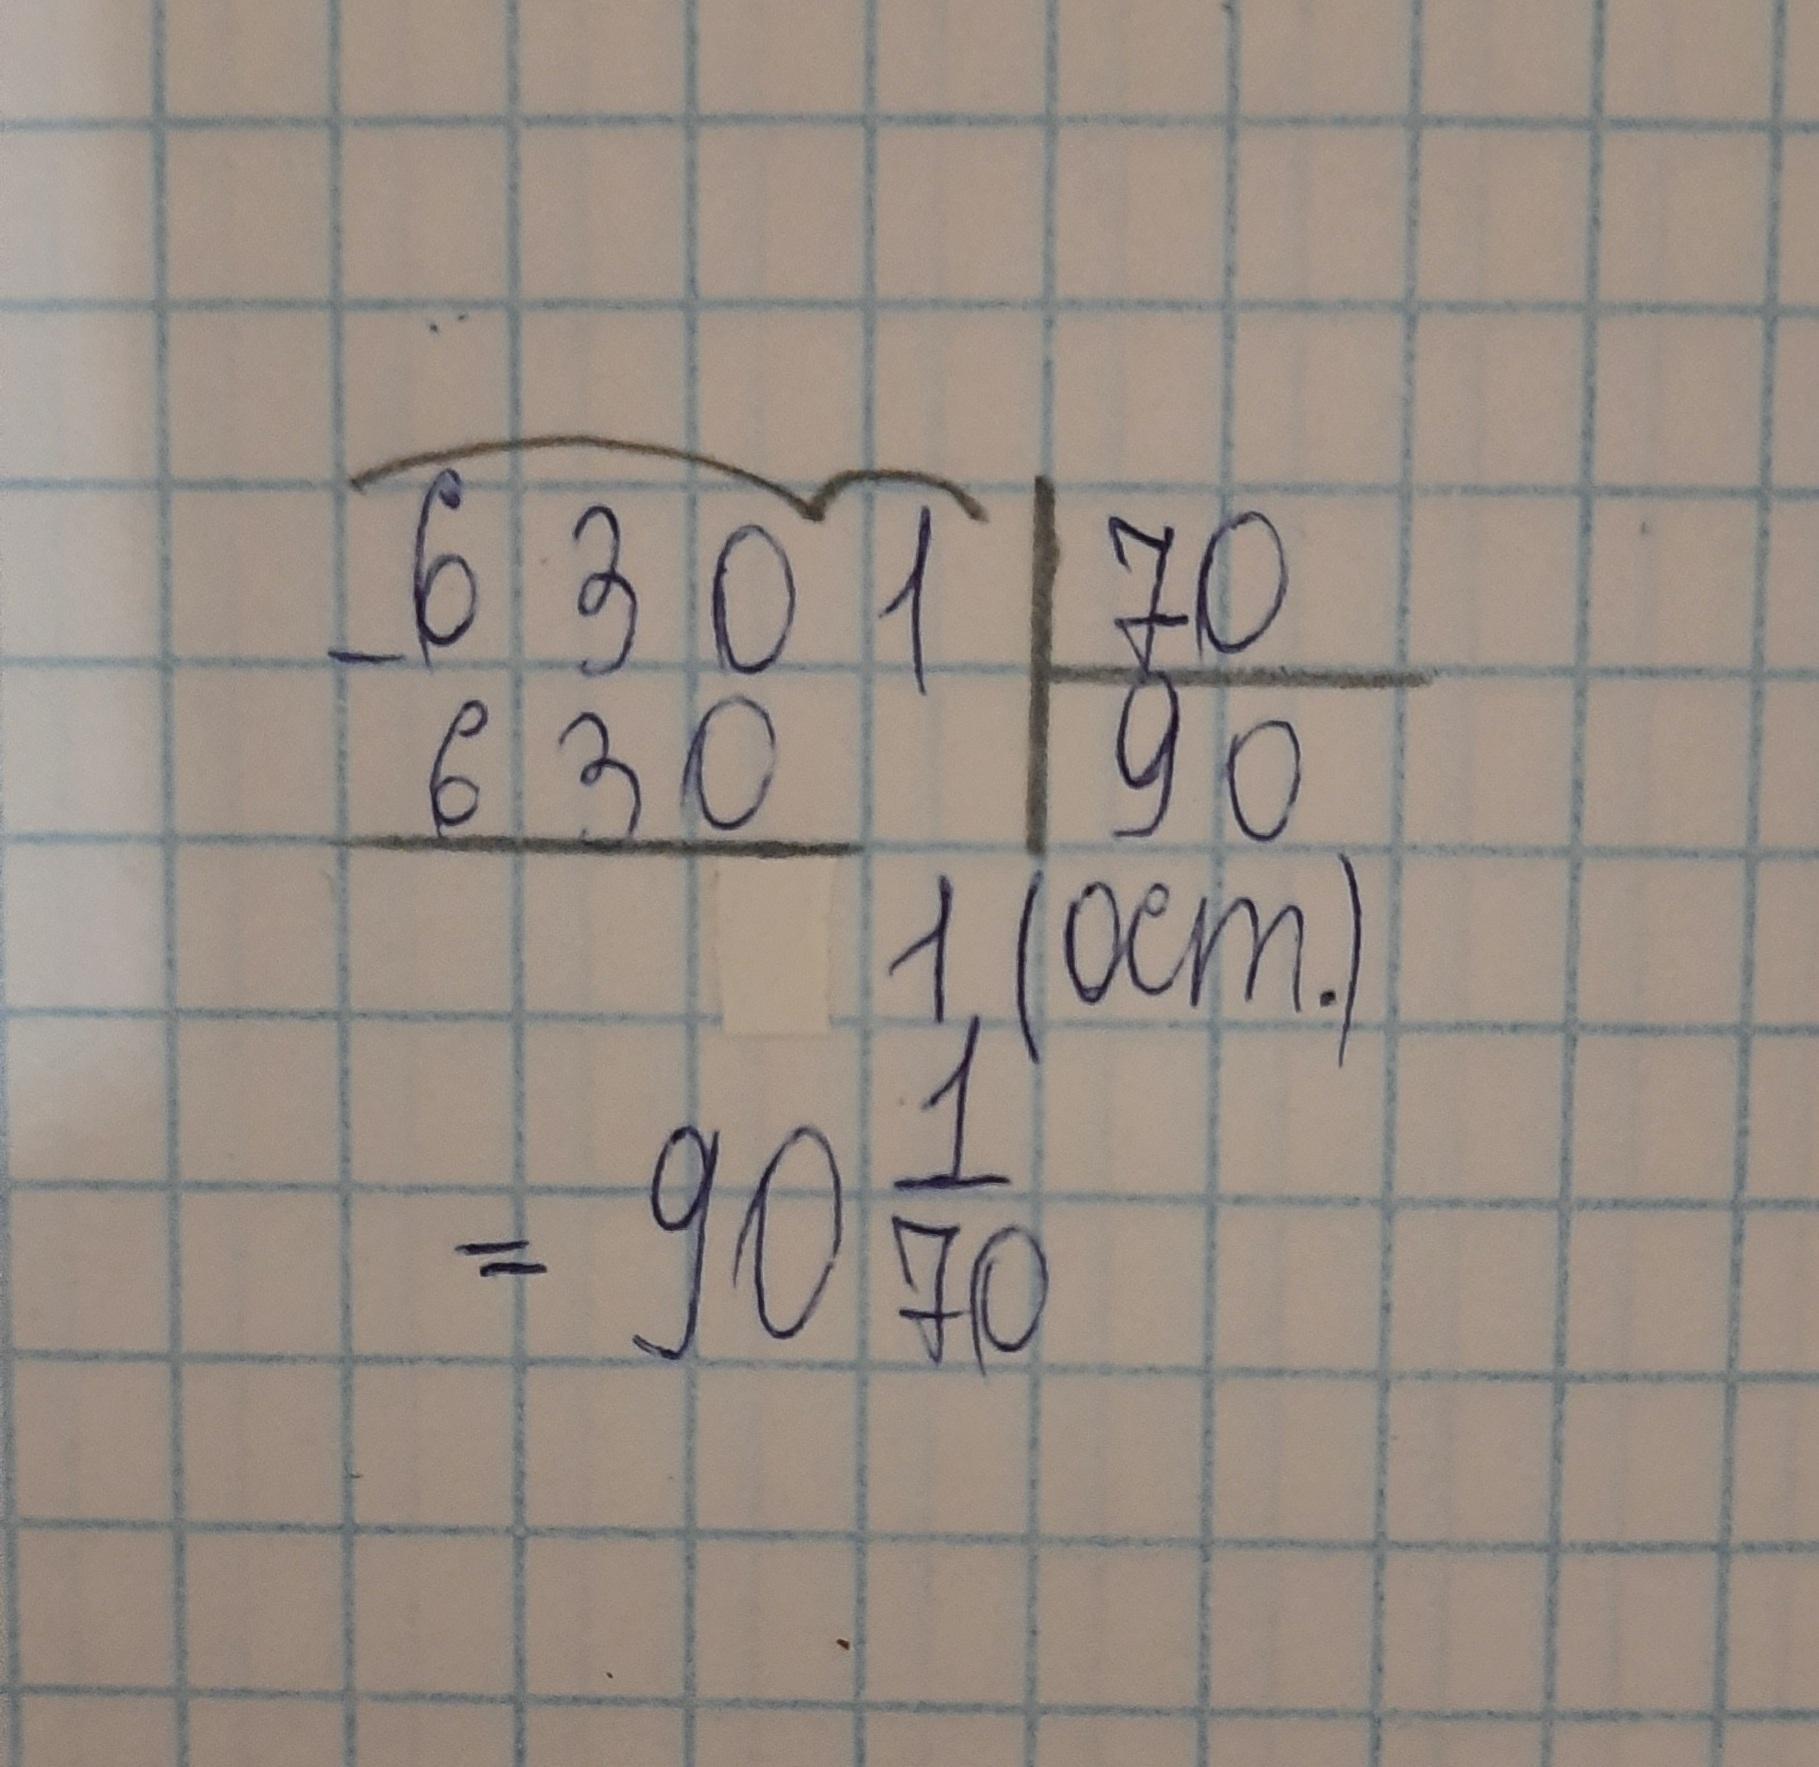 6301 | 70
- 630 | 90
1 (ост.)
= 90 1/70